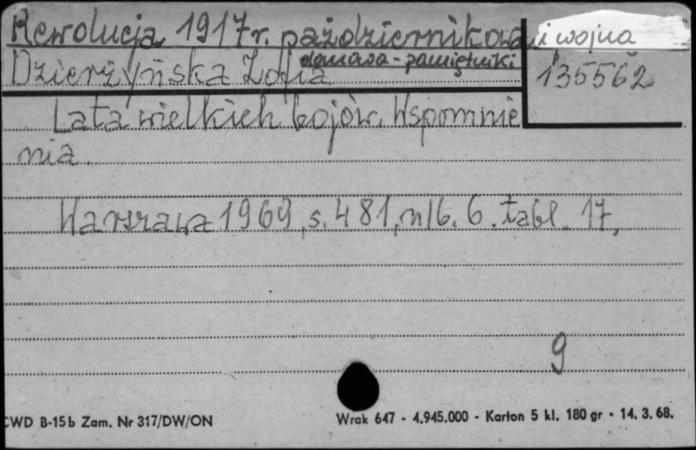 Rewolucja 1917 r. październikowa i wojna
domowa - pamiętniki
Dzierżyńska Zofia
135562
Lata wielkich bojów. Wspomnie
nia.
Warszawa 1969, s. 481, nlb. 6. tabl. 17,
9
CWD B-15b Zam. Nr 317/DW/ON
Wrak 647 - 4.945.000 - Karton 5 kl. 180 gr - 14. 3. 68.